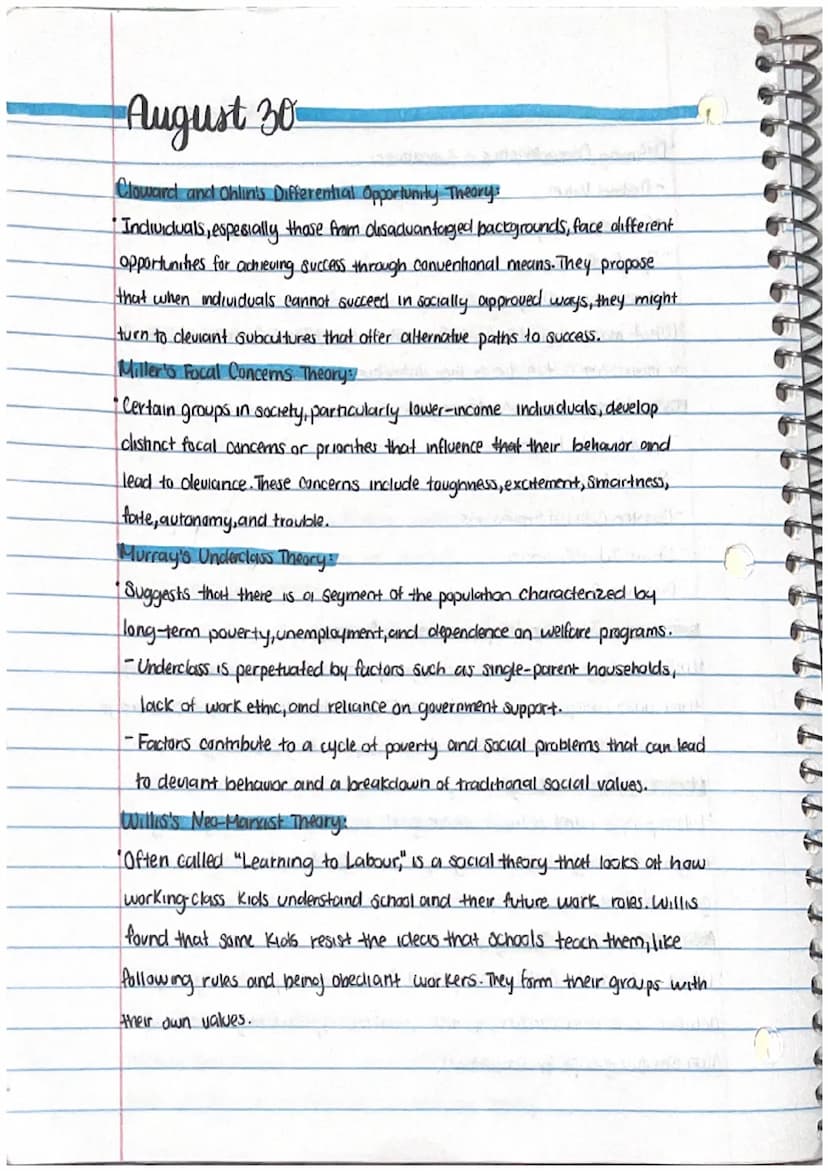 August 30
Cloward and Ohlin's Differential Opportunity Theory:
• Individuals, especially those from disadvantaged backgrounds, face different
opportunities for achieving success through conventional means. They propose
that when individuals cannot succeed in socially approved ways, they might
turn to deviant subcultures that offer alternative paths to success.
Miller's Focal Concerns Theory:
• Certain groups in society, particularly lower-income individuals, develop
distinct focal concerns or priorities that influence that their behavior and
lead to deviance. These concerns include toughness, excitement, smartness,
fate, autonomy, and trouble.
Murray's Underclass Theory:
• Suggests that there is a segment of the population characterized by
long-term poverty, unemployment, and dependence on welfare programs.
- Underclass is perpetuated by factors such as single-parent households,
lack of work ethic, and reliance on government support.
- Factors contribute to a cycle of poverty and social problems that can lead
to deviant behavior and a breakdown of traditional social values.
Willis's Neo-Marxist Theory:
• Often called "Learning to Labour," is a social theory that looks at how
working-class kids understand school and their future work roles. Willis
found that some kids resist the ideas that schools teach them, like
following rules and being obediant workers. They form their groups with
their own values.